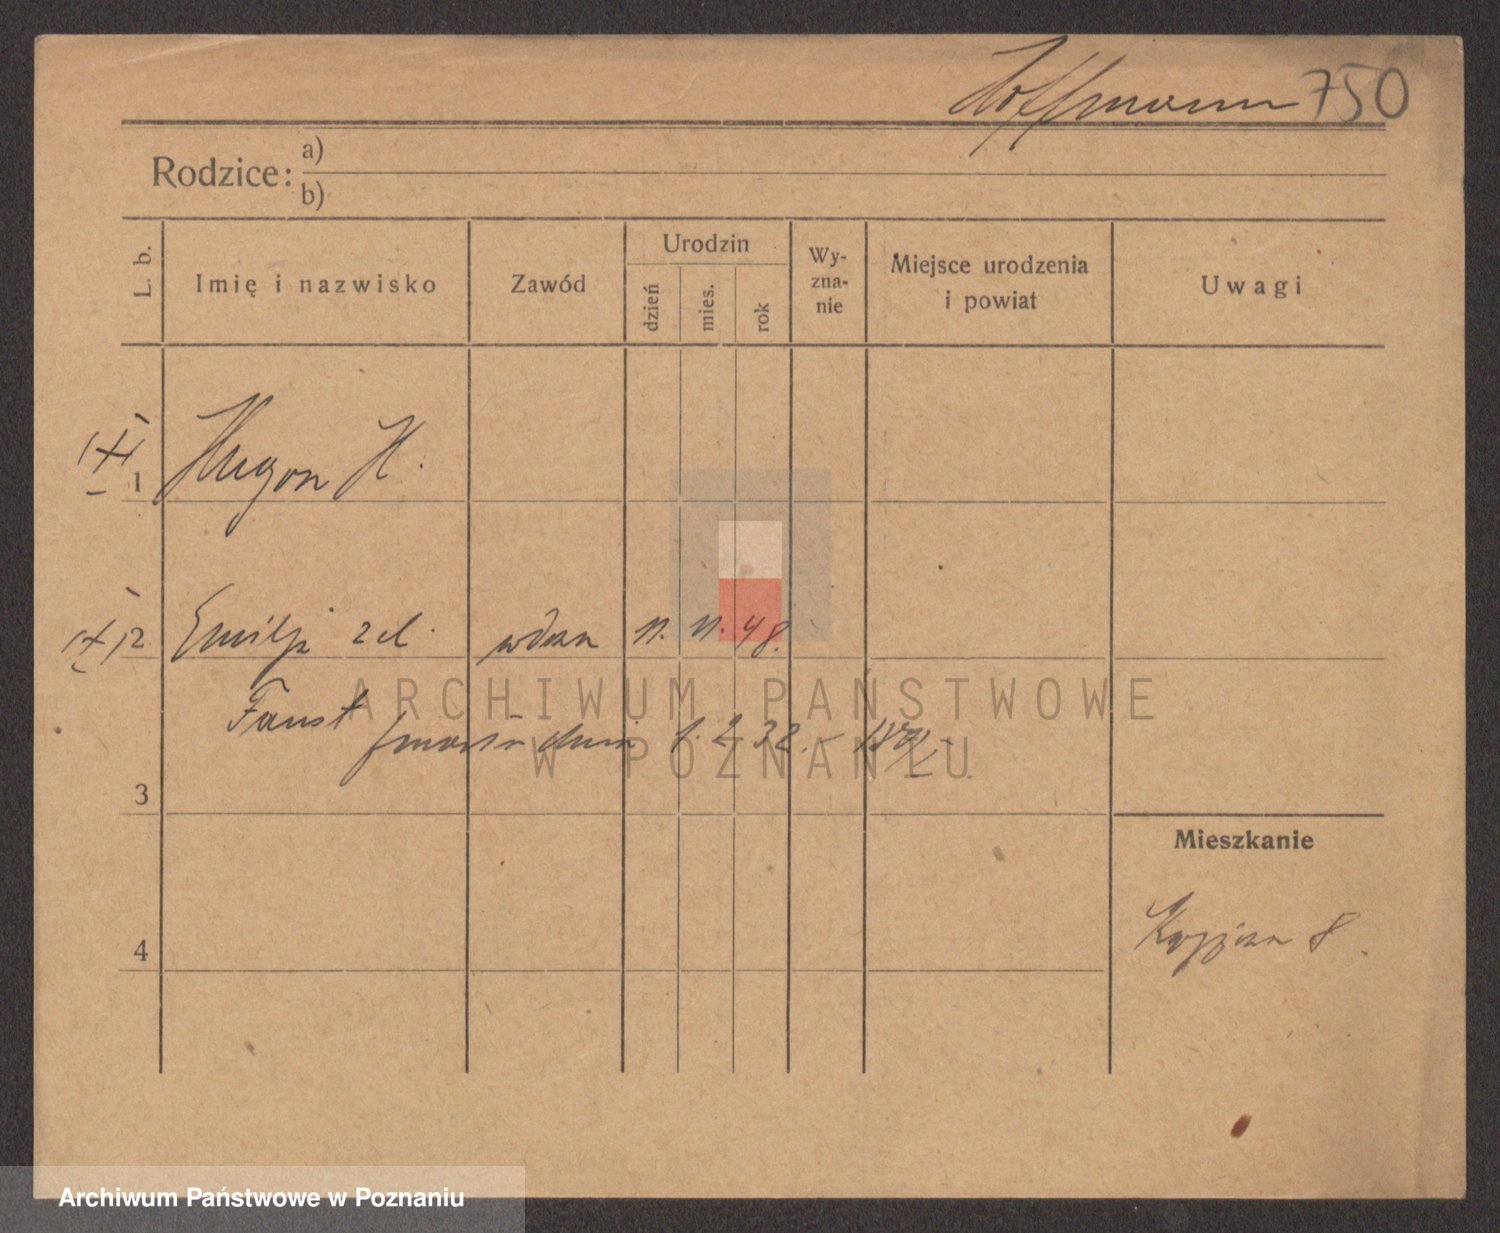 Hoffmann 750
Rodzice: a)
b)
L. b.
Imię i nazwisko
Zawód
Urodzin
dzień
mies.
rok
Wy-
zna-
nie
Miejsce urodzenia
i powiat
Uwagi
1 Hugon H.
2 Emilja zd. wdowa 11. 11. 48.
Faust
zmarła dnia 1. 2. 32.
3
ARCHIWUM PAŃSTWOWE
W POZNANIU
Mieszkanie
8
4
Archiwum Państwowe w Poznaniu